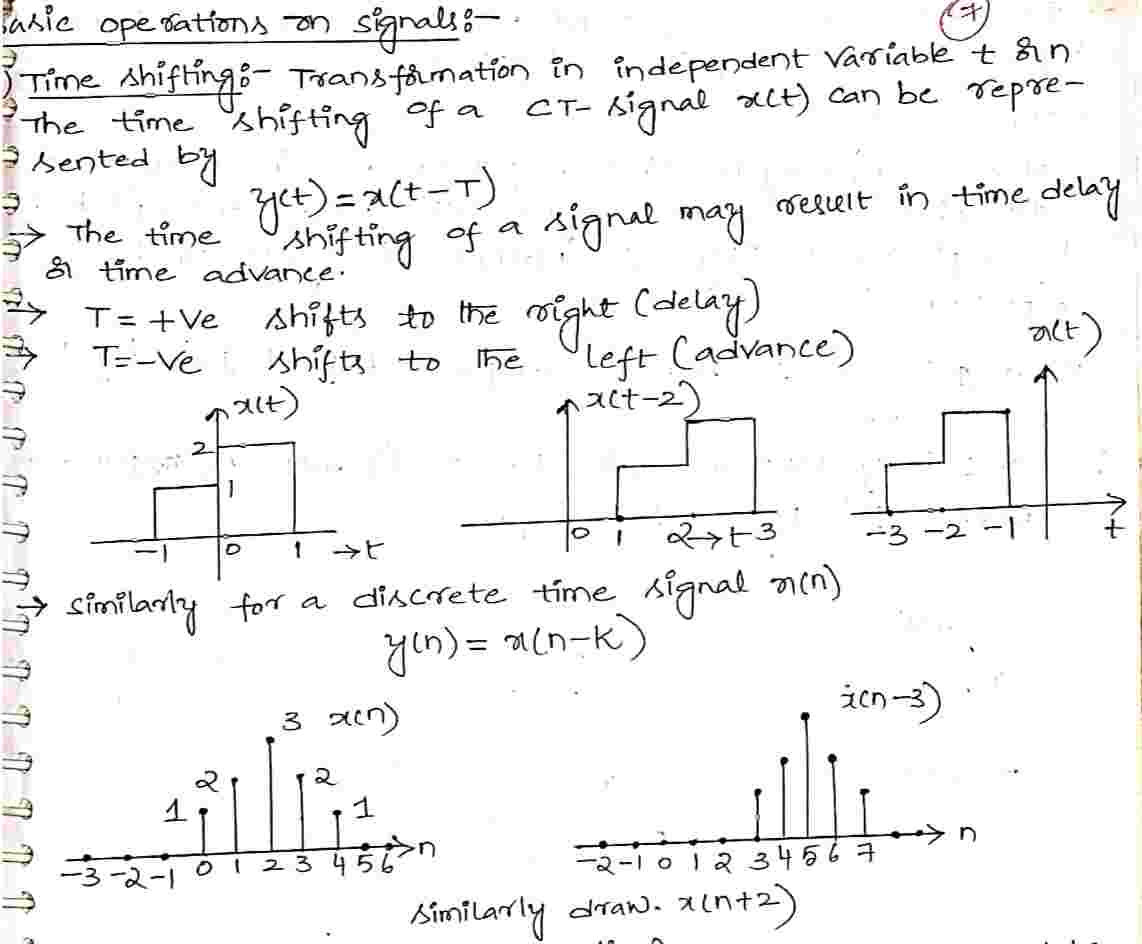 Basic operations on signals:-
7
1) Time shifting:- Transformation in independent variable t or n.
The time shifting of a CT- signal x(t) can be repre-
sented by
y(t) = x(t-T)
→ The time shifting of a signal may result in time delay
or time advance.
→ T = +ve shifts to the right (delay)
→ T=-ve shifts to the left (advance)
x(t)
2
1
-1 0 1 →t
x(t-2)
0 1 2→t 3
x(t)
-3 -2 -1 t
→ similarly for a discrete time signal x(n)
y(n) = x(n-k)
3 x(n)
2 2
1 1
-3 -2 -1 0 1 2 3 4 5 6 n
x(n-3)
-2 -1 0 1 2 3 4 5 6 7 n
similarly draw. x(n+2)